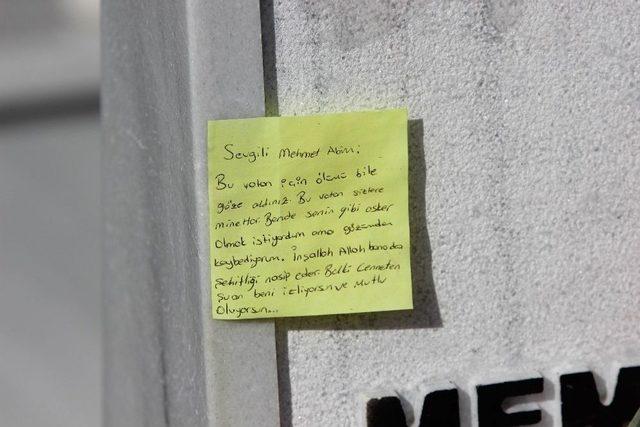 Sevgili Mehmet Abim;
Bu vatan için ölümü bile
göze aldınız. Bu vatan sizlere
minettar. Bende senin gibi asker
Olmak istiyordum ama gözümden
kaybediyorum. İnşallah Allah banada
Şehitliği nasip eder. Belki Cenneten
Şuan beni izliyorsun ve mutlu
Oluyorsun...